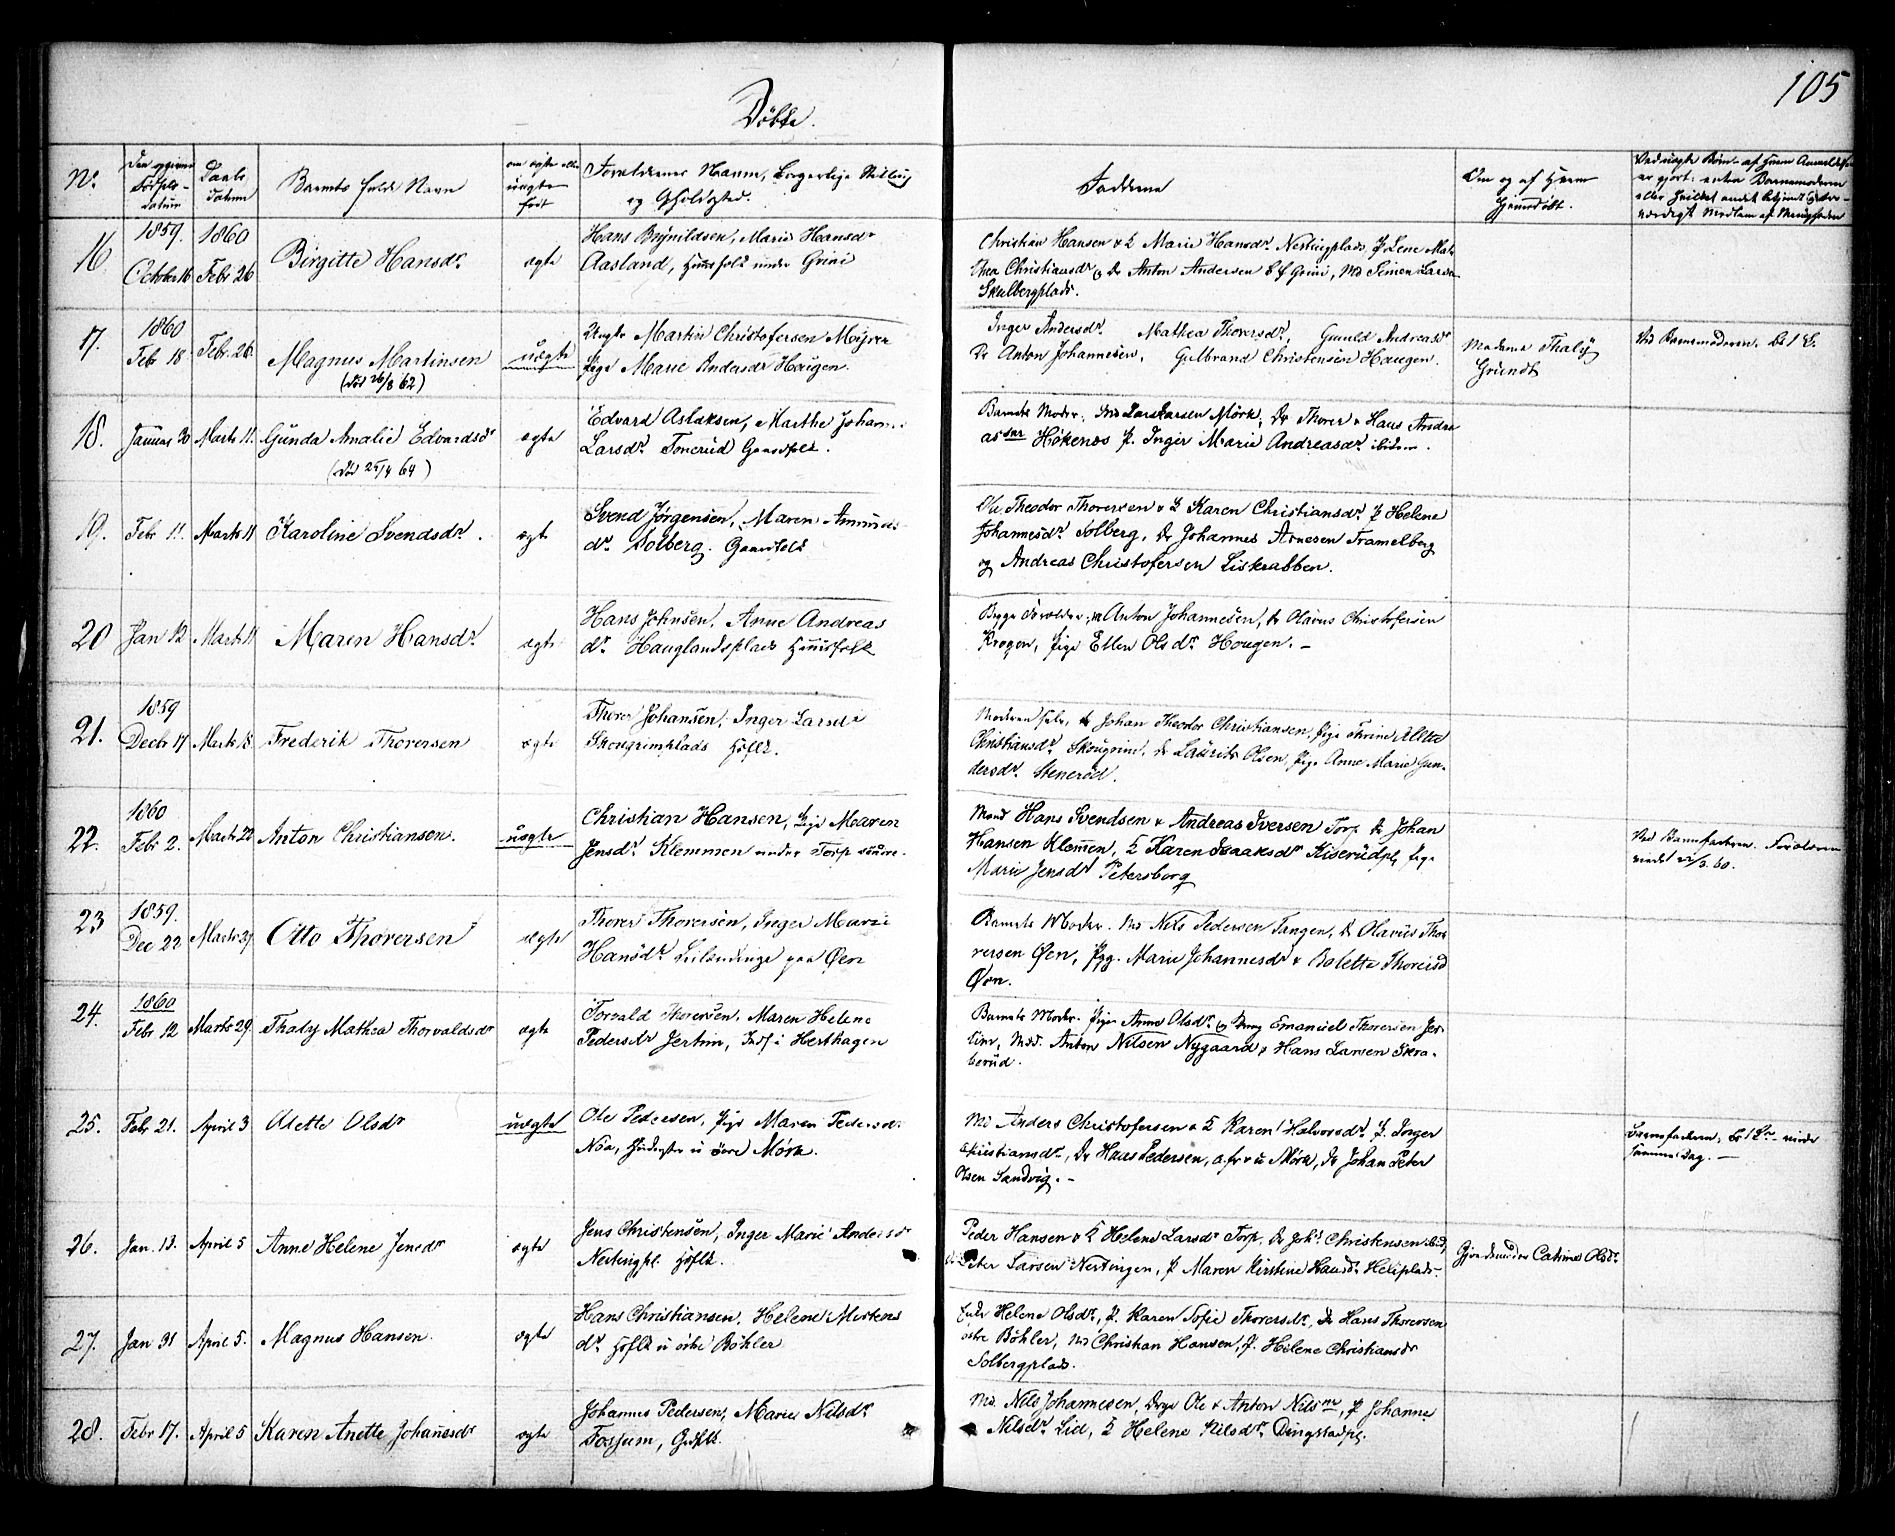 105
Döbte.
No. Den opgivne Fødsels-datum Daabs Datum Barnets fulde Navn om ægte eller uægte født Forældrenes Navne, borgerlige Stilling og Opholdssted. Faddere Om og af hvem hjemmedøbt.
16 1859. October 16 1860 Febr 26 Birgitte Hansdr ægte
Hans Brynildsen, Marie Hansdr
Aasland, Huusfolk under Grini
Christian Hansen & K Marie Hansdr Nestingplads, P Lene Mat
thea Christiansdr, Dr Anton Andersen Grini, Md Simen Larsen
Skulbergplads.
17. 1860 Feb 18 Feb. 26 Magnus Martinsen uægte
(död 26/8 62)
Ungk Martin Christofersen Myrer
Pige Marie Andersdr Haugen.
Inger Andersdr Mathea Thorersdr, Gunild Andreasdr
Dr Anton Johannesen, Gulbrand Christensen Haugen.
Madame Thaly
Grundt
Ved Barnemoderen.
18. Januar 30 Marts 11. Gunda Amalie Edvardsdr ægte
(död 25/4 64)
Edvard Aslaksen, Marthe Johanne
Larsdr Tonerud Gaardfolk.
Barnets Moder. Md Lars Larsen Mörk, Dr Thorer & Hans Andre
assner Høkenæs P. Inger Marie Andreasdr ibidem.
19. Febr 11. Marts 11 Karoline Svendsdr. ægte
Svend Jørgensen, Maren Amunds
dr Solberg. Gaardfolk
Ole Theodor Thoresen & K Karen Christiansdr P Helene
Johannesdr Solberg, Dr Johannes Arnesen Tramelberg
og Andreas Christofersen Liskrabben.
20 Jan 12 Marts 11 Maren Hansdr ægte
Hans Johnsen, Anne Andreas
dr Hauglandsplads Huusfolk
Begge Forældre, Anton Johannesen, Dr Olavus Christofersen
Krogen, Pige Ellen Olsdr Hougen.
21. 1859 Decbr 17 Marts 18 Frederik Thorersen ægte
Thorer Johansen, Inger Larsdr
Skougrimplads Hflk.
Moderen selv, Dr Johan Theodor Christiansen, Pige Thrine Alette
Christiansdr Skougrim, Dr Laurits Olsen, Pige Anne Marie Gun-
dersdr Stenerød.
22. 1860 Febr 2. Marts 22 Anton Christiansen. uægte
Christian Hansen, Pige Maren
Jensdr Klemmen under Torp söndre.
Mænd Hans Svendsen & Andreas Iversen Torp Dr Johan
Hansen Klemmen, K Karen Isaaksdr Kiserudpl Pige
Marie Jensdr Petersborg
Ved Barnefaderen. Forældrene
viede 22/3 60.
23 1859. Dec 22 Marts 29 Otto Thorersen ægte
Thorer Thorersen, Inger Marie
Hansdr Leilendinge paa Øen
Barnets Moder. Md Nils Pedersen Tangen, Dr Olavus Tho
rersen Øen, Pige Marie Johannesdr & Bolette Thorersd
Øen.
24. 1860 Febr 12 Marts 29. Thaly Mathea Thorvaldsdr ægte
Torvald Thorersen, Maren Helene
Pedersdr Jertum, Inds i Herthagen
Barnets Moder. Pige Anne Olsdr Emanuel Thorersen Jer
tum, Md. Anton Nilsen Nygaard & Hans Larsen Skra-
berud.
25. Febr 21. April 3 Alette Olsdr uægte
Ole Pedersen, Pige Maren Pedersdr
Nöa, i övre Mörk.
Md Anders Christofersen & K Karen Halvorsdr P Inger
Christiansdr, Dr Hans Pedersen, Mörk, Dr Johan Peter
Olsen Sandvig.
Barnefaderen, viede
samme Dag.
26. Jan. 13. April 5 Anne Helene Jensdr ægte
Jens Christensen, Inger Marie Andersdr
Nestingpl. Hflk.
Peder Hansen & K Helene Larsdr Torp, Dr Johs Christensen ibid,
Dr Peter Larsen Nestingen, P Maren Kirstine Hansdr Heliplads.
Gjordemoder Catrine Olsdr
27. Jan 31 April 5. Magnus Hansen. ægte
Hans Christiansen, Helene Mortens
dr Hflk i östre Böhler
Enke Helene Olsdr, P. Karen Sofie Thorersdr, Dr Hans Thoresen
östre Böhler, Md Christian Hansen, P. Helene Christiansdr
Solbergplads.
28. Febr 17. April 5 Karen Anette Johanesdr ægte
Johannes Pedersen, Marie Nilsdr
Fossum, Gdflk.
Md. Nils Johannesen, Drge Ole & Anton Nilsne, P Johanne
Nilsdr Lid, K Helene Nilsdr Dingstadpl.